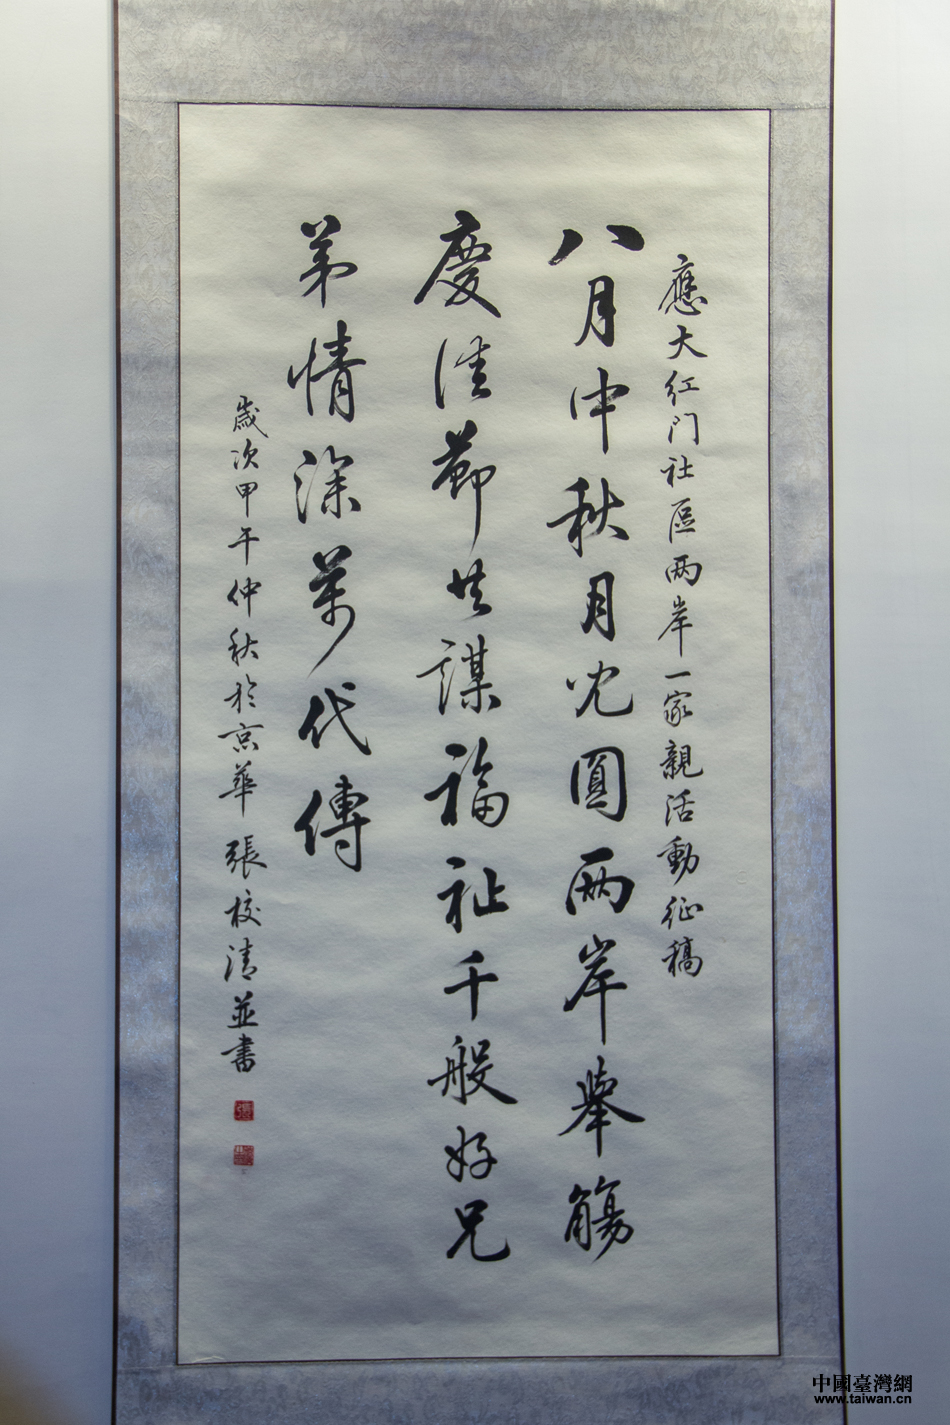 應大红门社區两岸一家親活動征稿
八月中秋月光圓两岸舉觴
慶佳節共謀福祉千般好兄
弟情深萬代傳
歲次甲午仲秋於京華 張校清並書
中國臺灣網
www.taiwan.cn